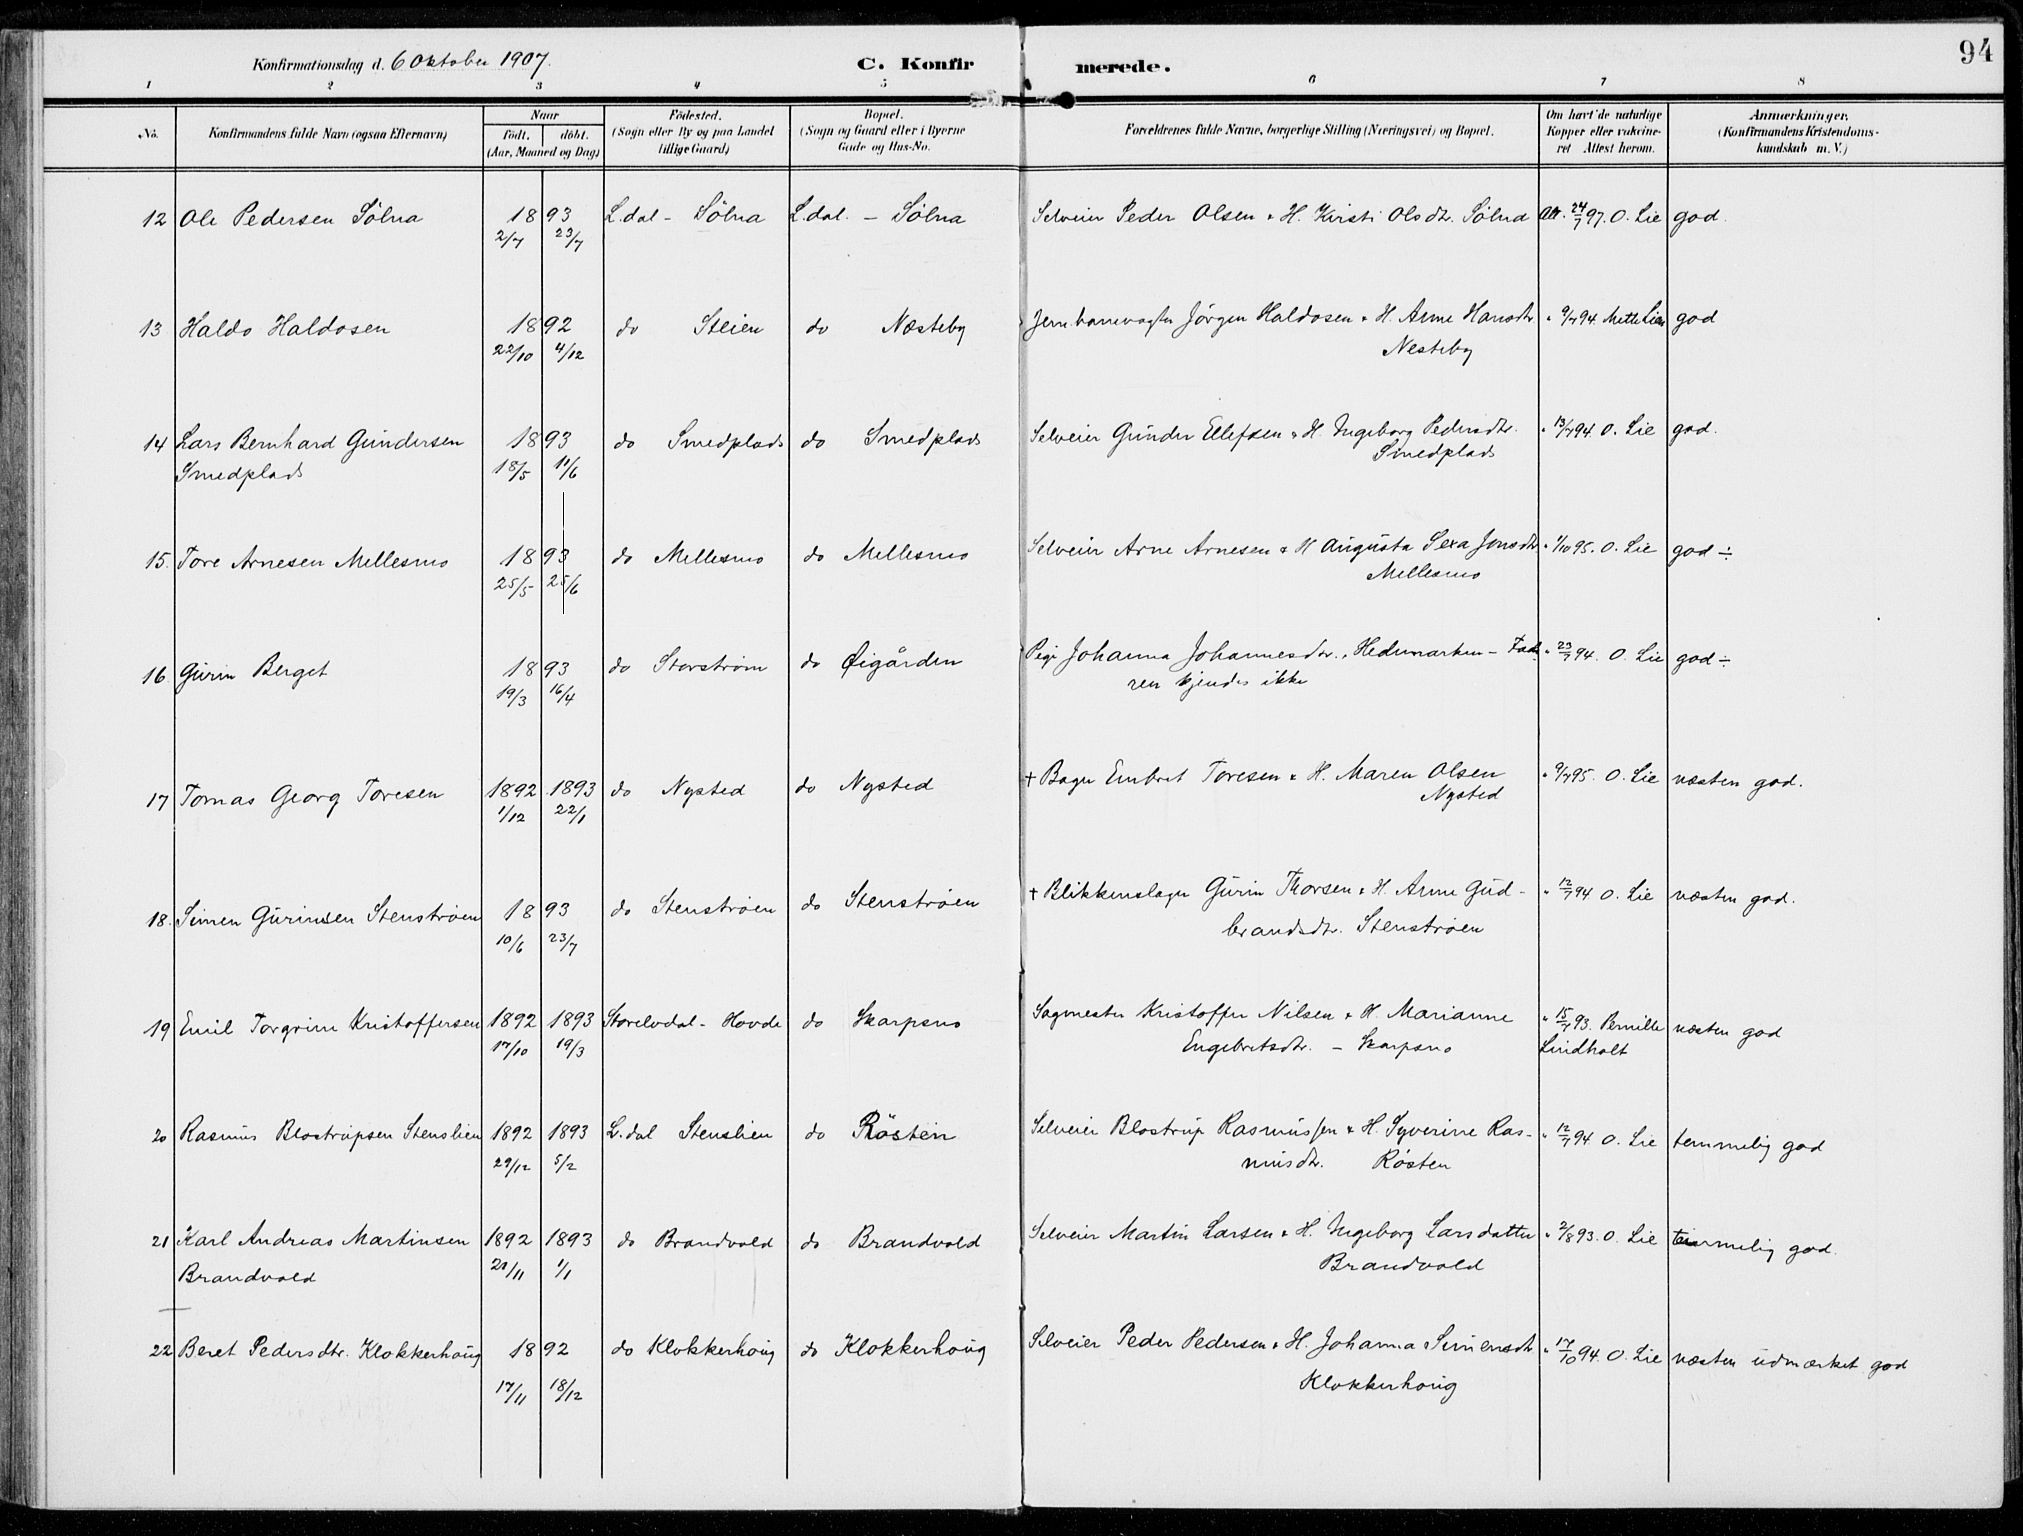 94
Konfirmationsdag d. 6 Oktober 1907.
C. Konfirmerede.
1 2 3 4 5 6 7 8
No.
Konfirmandens fulde Navn (ogsaa Efternavn)
Naar
födt. döbt.
(Aar, Maaned og Dag)
Födested.
(Sogn eller By og paa Landet
tillige Gaard)
Bopæl.
(Sogn og Gaard eller i Byerne
Gade og Hus-No.
Forældrenes fulde Navne, borgerlige Stilling (Næringsvei) og Bopæl.
Om havt de naturlige
Kopper eller vakcine-
ret Attest herom.
Anmærkninger.
(Konfirmandens Kristendoms-
kundskab m. V.)
12 Ole Pedersen Sölna 1893 L.dal - Sölna L.dal. - Sölna Selveier Peder Olsen & H. Kirsti Olsdtr. Sölna Att. 24/7 97. O. Lie god.
2/7 23/7
13 Haldo Haldosen 1892 do Steien do Næsteby Jernbanevagter Jörgen Haldosen & H. Anne Hansdtr " 9/7 94. Mette Lien god
22/10 4/12 Nesteby
14 Lars Bernhard Gundersen 1893 do Smedplads do Smedplads Selveier Gunder Ellefsen & H. Ingeborg Pedersdtr. " 13/7 94. O. Lie god.
Smedplads 18/5 11/6 Smedplads
15. Tore Arnesen Mellesmo 1893 do Mellesmo do Mellesmo Selveier Arne Arnesen & H Augusta Sexa Jonsdtr " 1/10 95. O. Lie god ÷
25/5 25/6 Mellesmo
16 Gurin Berget 1893 do Storstrøm do Øigården Pige Johanna Johannesdtr., Hedemarken - Fade- " 23/7 94. O. Lie god ÷
19/3 16/4 ren kjendes ikke
17 Tomas Georg Toresen 1892 1893 do Nysted do Nysted + Bager Embret Toresen & H. Maren Olsen " 9/7 95. O. Lie næsten god.
1/12 22/1 Nysted
18. Simen Gurinsen Stenstrøen 1893 do Stenstrøen do Stenstrøen + Blikkenslager Gurin Thorsen & H. Anne Gud- " 12/7 94 O. Lie næsten god.
10/6 23/7 brandsdtr. Stenstrøen
19 Emil Torgrim Kristoffersen 1892 1893 Storelvdal - Hovde do Skarpsno Sagmester Kristoffer Nilsen & H. Marianne " 15/7 93. Pernille næsten god
17/10 19/3 Engebretsdtr. - Skarpsno Lindholt
20 Rasmus Blostrupsen Stenslien 1892 1893 L.dal Stenslien do Röstein Selveier Blostrup Rasmussen & H. Syverine Ras- " 12/7 94 O. Lie temmelig god
29/12 5/2 musdtr. Rösten
21 Karl Andreas Martinsen 1892 1893 do Brandvold do Brandvold Selveier Martin Larsen & H. Ingeborg Larsdatter " 2/8 93. O. Lie temmelig god.
Brandvold 21/11 1/1 Brandvold
22 Beret Pedersdtr. Klokkerhoug 1892 do Klokkerhoug do Klokkerhoug Selveier Peder Pedersen & H. Johanna Simensdtr " 17/10 94. O. Lie næsten udmærket god
17/11 18/12 Klokkerhoug